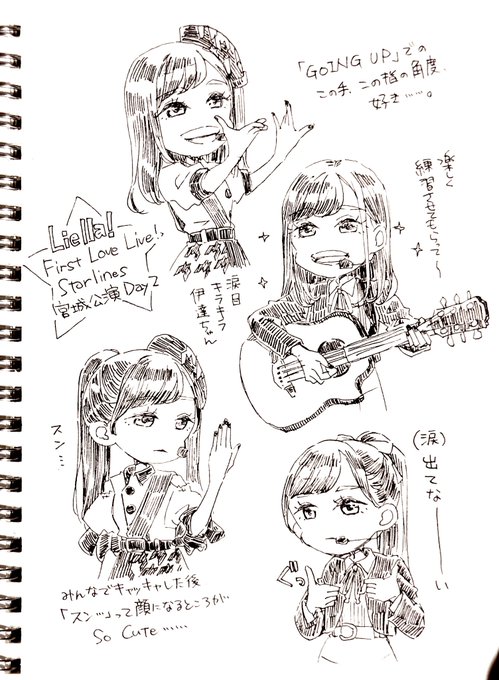 「GOING UP」での
この手、この指の角度、
好き……。
Liella!
First Love Live!,
Starlines
宮城公演Day2
涙目
キラキラ
伊達ちゃん
スン…
みんなでキャッキャした後
「スン…」って顔になるところが
So Cute……
(涙)
出てな――い
ぐっ